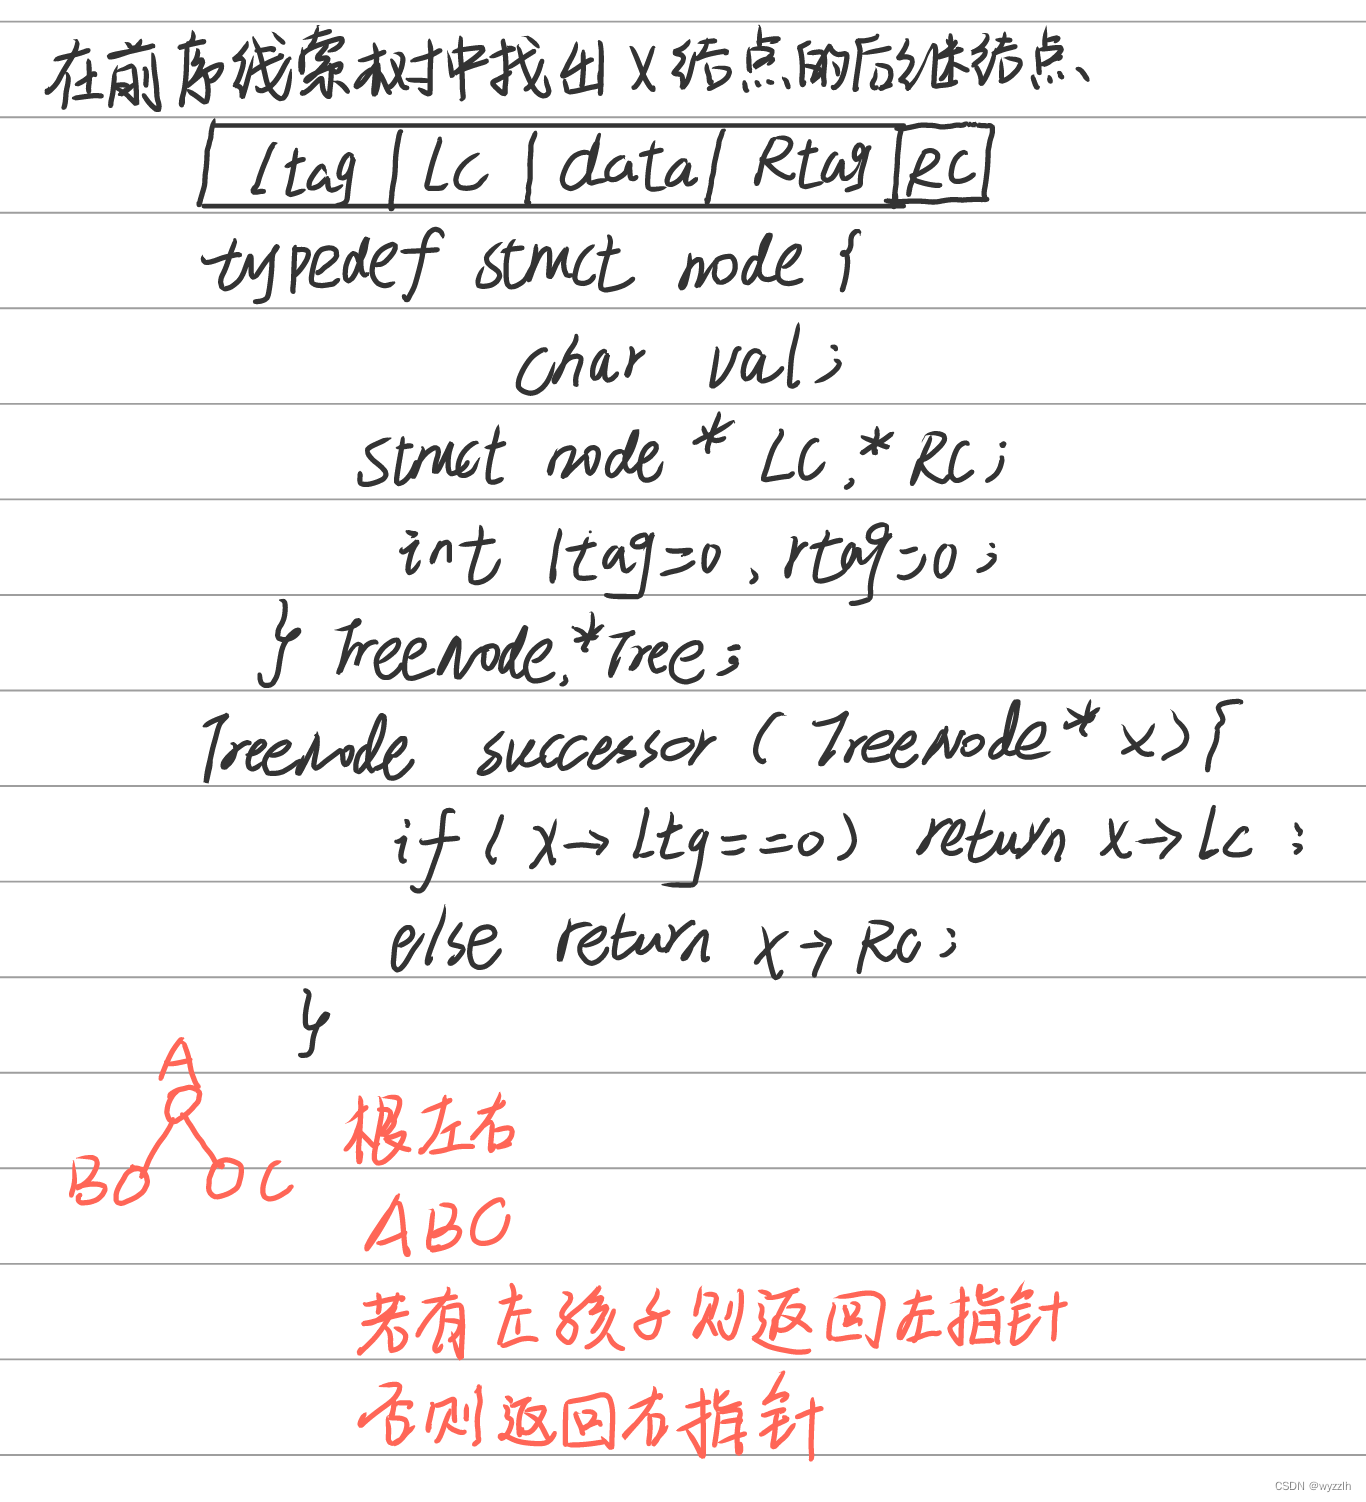 在前序线索树中找出X结点的后继结点、
ltag LC data Rtag RC
typedef struct node {
char val;
struct node * LC,* RC;
int ltag=0、rtag=0;
} TreeNode,*Tree;
TreeNode successor ( TreeNode* x){
if( x→ Ltg==0) return x→Lc ;
else return x→RC;
}
A
B C
根左右
ABC
若有左孩子则返回左指针
否则返回右指针
CSDN @wyzzlh